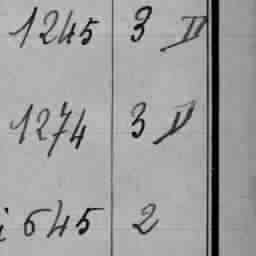 1245 3 II
1274 3 V
i 645 2